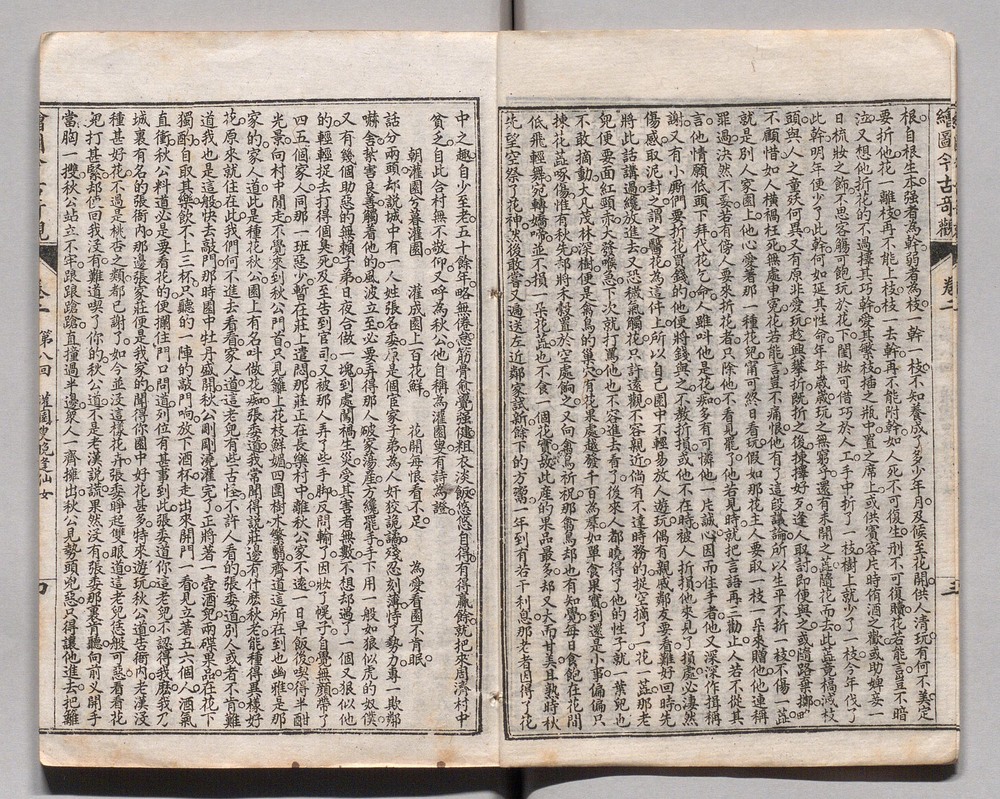 繪圖今古奇觀 卷二 三
根自根生本強者為幹弱者為枝一幹一枝不知養成了多少年月及候至花開供人清玩有何不美定
要折他花一離枝再不能上枝枝一去幹再不能附幹如人死不可復生刑不可復贖花若能言豈不暗
泣又想他折花的不過擇其巧幹愛其繁枝插之瓶中置之席上或供賓客片時侑酒之歡或助婢妾一
日梳妝之飾不思客觴可飽玩於花下閨妝可借巧於人工手中折了一枝樹上就少了一枝今年伐了
此幹明年便少了此幹何如延其性命年年歲歲玩之無窮乎還有未開之蕊隨花而去此蕊竟槁滅枝
頭與人之童妖何異又有原非愛玩趁興攀折既折之後揀擇好歹逢人取討即便與之或隨路棄擲
不顧惜如人橫禍枉死無處申冤花若能言豈不痛恨他有了這段議論所以生平不折一枝不傷一蕊
就是別人家園上他心愛著那一種花兒甯可終日看玩假如那花主人要取一枝一朵來贈他他連稱
罪過決然不要若有傍人要來折花者只除他不看見罷了他若見時就把言語再三勸止人若不從其
言他情願低頭下拜代花乞命人雖叫他是花痴多有可憐他一片誠心因而住手者他又深深作揖稱
謝又有小廝們要折花賣錢的他便將錢與之不教折損或他不在時被人折損他來見了損處必淒然
傷感取泥封之謂之醫花為這件上所以自己園中不輕易放人遊玩偶有親戚鄰友要看難好回時先
將此話講過纔放進去又恐穢氣觸花只許遠觀不容親近倘有不達時務的捉空摘了一花一蕊那老
兒便要面紅頸赤大發喉急下次就打罵他也不容進去看了後來人都曉得了他的性子就一葉兒也
不敢摘動大凡茂林深樹便是禽鳥的巢穴有花果處越發千百為羣如單食果實到還是小事偏偏只
揀花蕊啄傷惟有秋先卻將米穀置於空處飼之又向禽鳥祈祝那禽鳥却也有知覺每日食飽在花間
低飛輕舞宛轉嬌啼並不損一朵花蕊也不食一個花實故此產的果品最多却又大而甘美且熟時秋
先望空祭了花神然後敢嘗又遍送左近鄰家試新餘下的方鬻一年到有若干利息那老者因得了花
中之趣自少至老五十餘年略無倦意筋骨愈覺強健粗衣淡飯悠悠自得有得贏餘就把來周濟村中
貧乏自此合村無不敬仰又呼為秋公他自稱為灌園叟有詩為證
朝灌園兮暮灌園 灌成園上百花鮮 花開每恨看不足 為愛看園不肯眠
話分兩頭却說城中有一人姓張名委原是個宦家子弟為人奸狡詭譎殘忍刻薄恃了勢力專一欺鄰
嚇舍紮害良善觸着他的風波立至必要弄得那人破家蕩產方纔罷手手下用一般如狼似虎的奴僕
又有幾個助惡的無賴子弟日夜合做一塊到處闖禍生災受其害者無數不想却遇了一個又狠似他
的輕輕捉去打得個臭死及至告到官司又被那人弄了些手腳反問輸了因妝了幌子自覺無顏帶了
四五個家人同那一班惡少暫在莊上遣悶那莊正在長樂村中離秋公家不遠一日早飯後喫得半酣
光景向村中閒走不覺來到秋公門首只見籬上花枝鮮媚四圍樹木繁翳齊道這所在到也幽雅是那
家的家人道此是種花秋公園上有名叫做花痴張委道我常聞得說莊邊有什麼秋老能種得異樣好
花原來就住在此我們何不進去看看家人道這老兒有些古怪不許人看的張委道別人或者不肯難
道我也是這般快去敲門那時園中牡丹盛開秋公剛剛澆灌完了正將著一壺酒兒兩碟果品在花下
獨酌自取其樂飲不上三杯只聽的一陣的敲門响放下酒杯走出來開門一看見立著五六個人酒氣
直衝秋公料道必是要看花的便攔住門口問道列位有甚事到此張委道你這老兒不認得我麼我乃
城裏有名的張衙內那邊張家莊便是我家的聞得你園中好花甚多特來遊玩秋公道告衙內老漢沒
種甚好花不過是桃杏之類都已謝了如今並沒這樣花卉張委睜起雙眼道這老兒恁般可惡看看花
兒打甚緊却便回我沒有難道喫了你的秋公道不是老漢說謊果然沒有張委那裏肯聽向前义開手
當胸一搜秋公站立不牢踉踉蹌蹌直撞過半邊眾人一齊擁出秋公見勢頭兇惡只得讓他進去把籬
卷二 第八回 灌園叟晚逢仙女